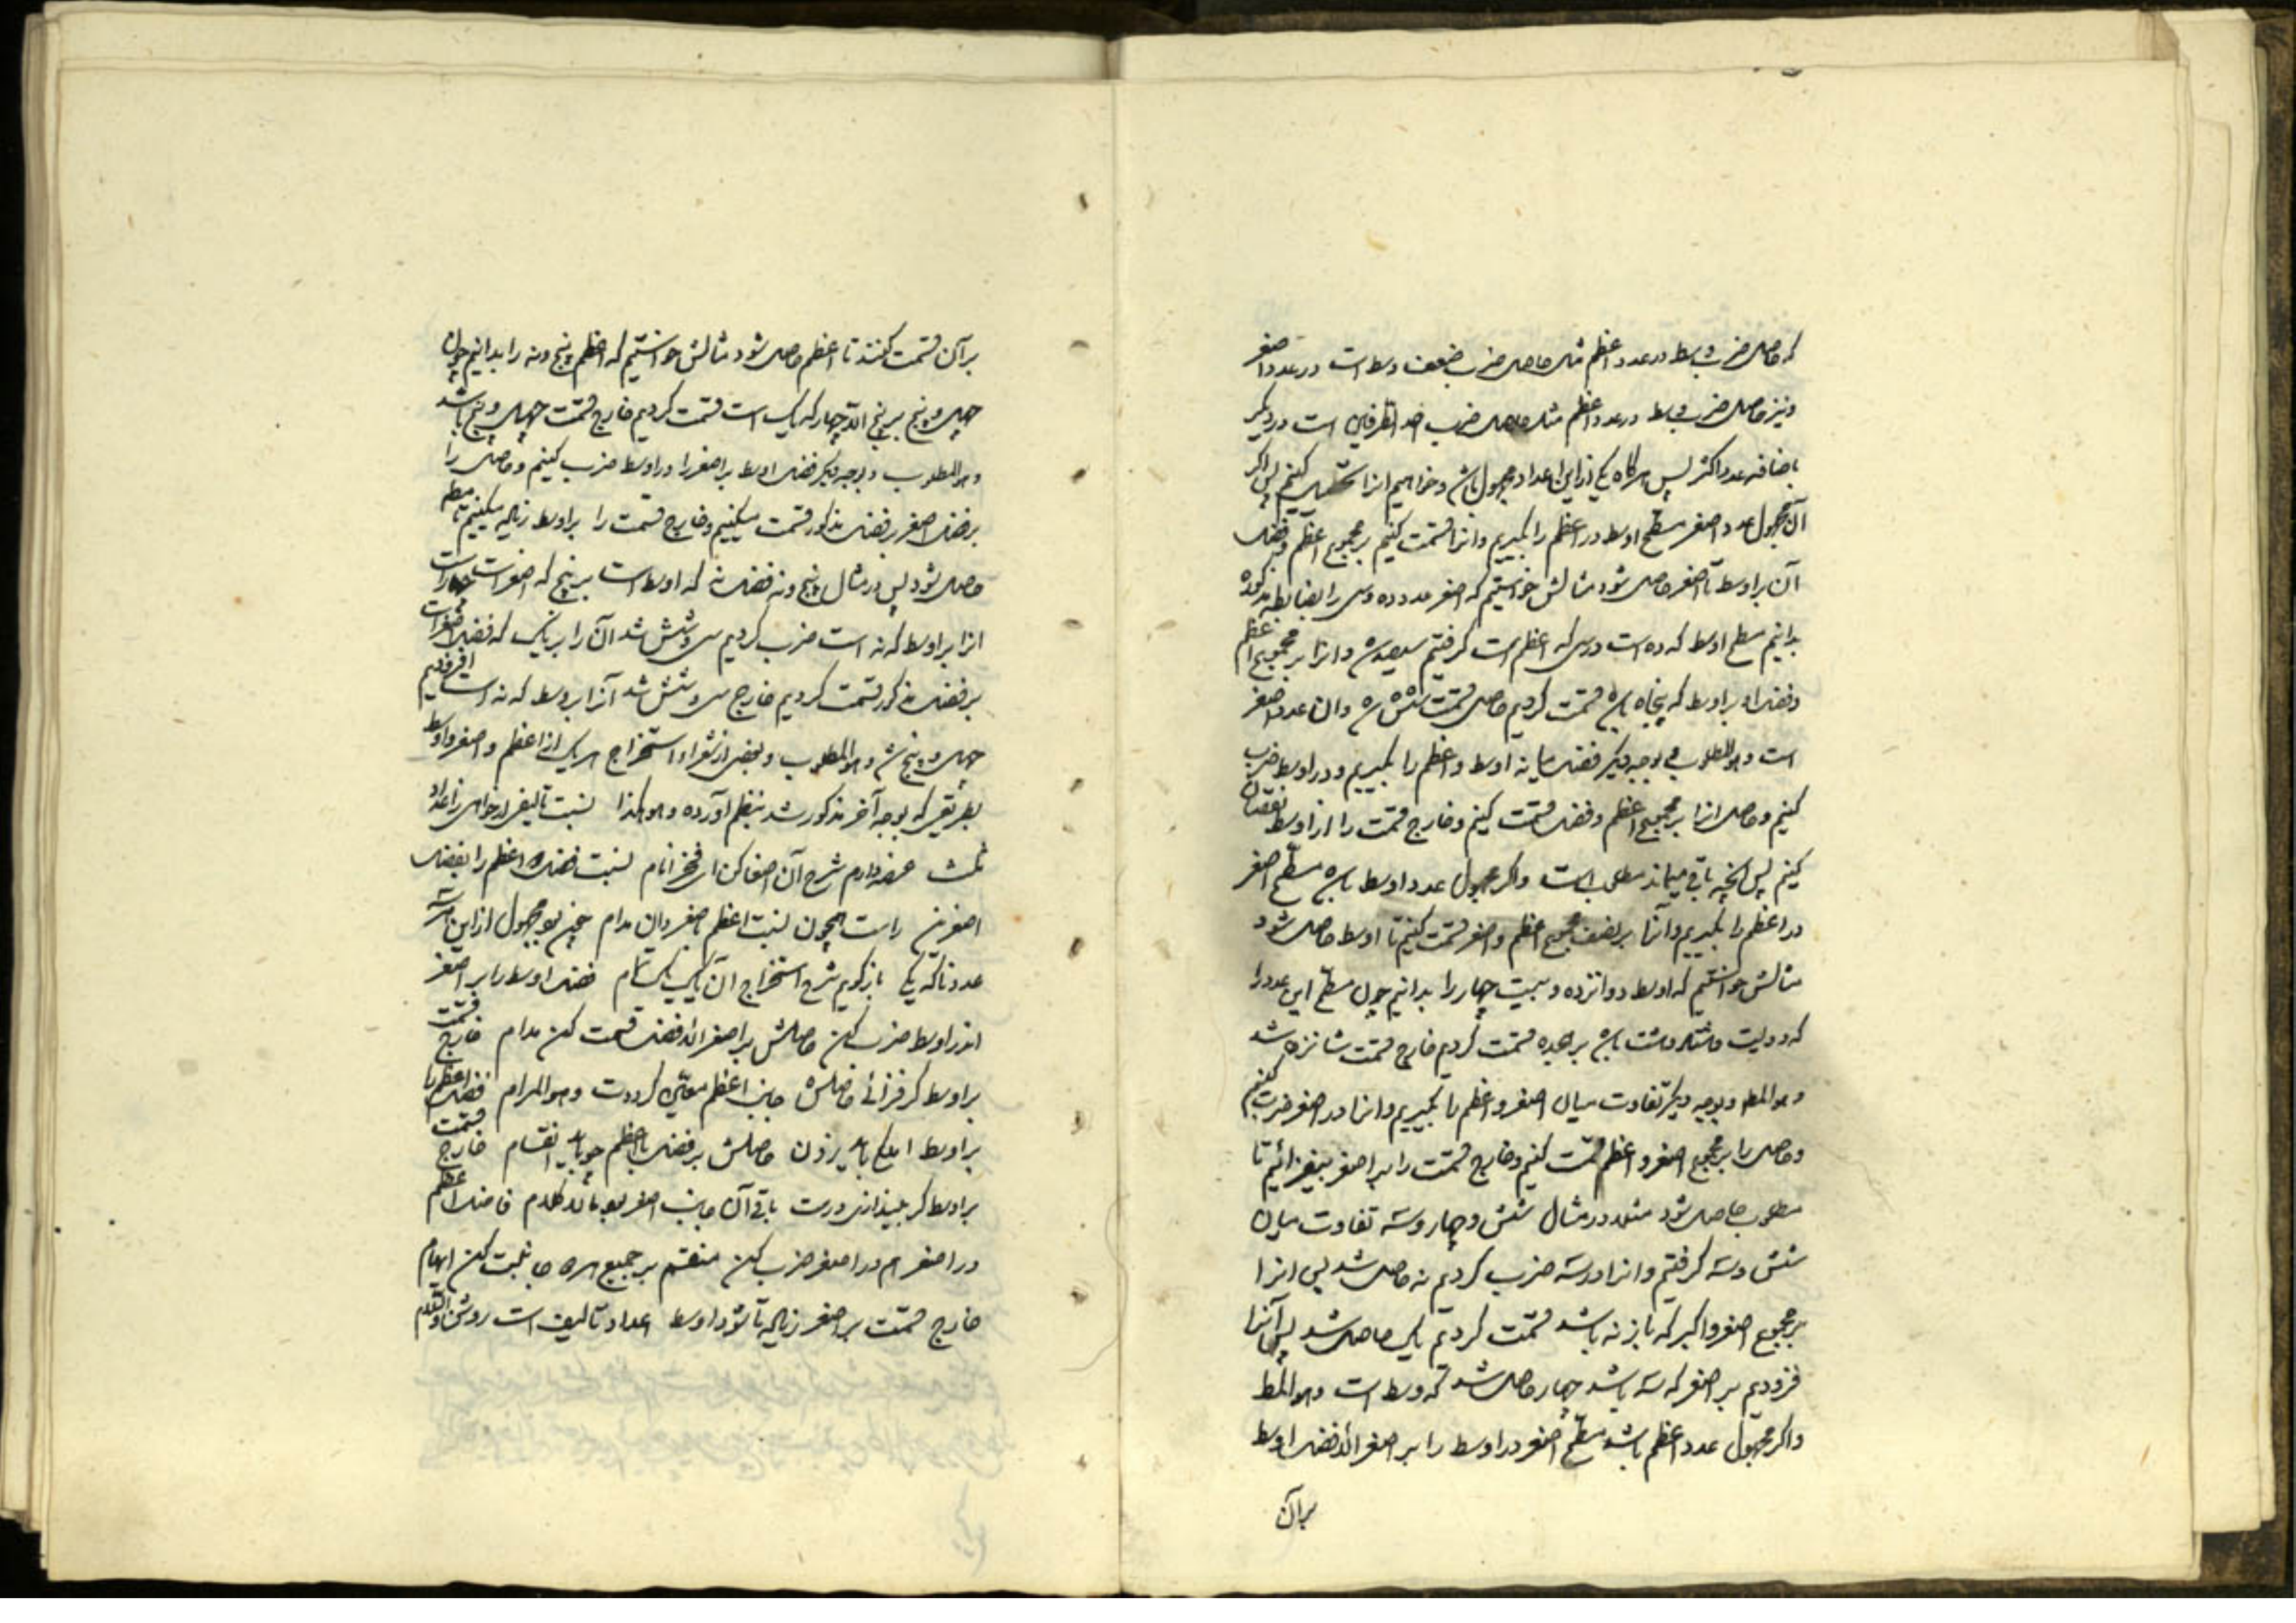 که حاصل ضرب وسط در عدد اعظم مثل حاصل ضرب ضعف وسط است در عدد اصغر
و نیز حاصل ضرب وسط در عدد اعظم مثل حاصل ضرب احد الطرفین است در دیگر
باضافه عدد اکثر پس هرگاه یکی از این اعداد مجهول باشد و خواهیم انرا کنیم پس اگر
آن مجهول عدد اصغر مسطح اوسط در اعظم را بگیریم و انرا قسمت کنیم بر مجموع اعظم و فضل
آن بر اوسط تا اصغر حاصل شود مثالش خواستیم که اصغر عدد ده وسی را بضابطه مذکوره
بدانیم مسطح اوسط که ده است در سی که اعظم است گرفتیم سیصد شد و انرا بر مجموع اعظم
و فضل او بر اوسط که پنجاه باشد قسمت کردیم حاصل قسمت شش شد و ان عدد اصغر
است و هو المطلوب و بوجه دیگر فضل میانه اوسط و اعظم را بگیریم و در اوسط ضرب
کنیم و حاصل انرا بر مجموع اعظم و فضل قسمت کنیم و خارج قسمت را از اوسط نقصان
کنیم پس آنچه باقی میماند مطلوب است و اگر مجهول عدد اوسط باشد مسطح اصغر
در اعظم را بگیریم و آنرا بر نصف مجموع اعظم و اصغر قسمت کنیم تا اوسط حاصل شود
مثالش خواستیم که اوسط دوازده و بیست چهار را بدانیم چون مسطح این عدد را
که دویست و هشتاد و هشت باشد بر هجده قسمت کردیم خارج قسمت شانزده شد
و هو المط و بوجه دیگر تفاوت میان اصغر و اعظم را بگیریم و انرا در اصغر ضرب کنیم
و حاصل را بر مجموع اصغر و اعظم قسمت کنیم و خارج قسمت را بر اصغر بیفزائیم تا
مطلوب حاصل شود مثلا در مثال شش و چهار و سه تفاوت میان
شش و سه گرفتیم و انرا در سه ضرب کردیم نه حاصل شد پس انرا
بر مجموع اصغر و اکبر که باز نه باشد قسمت کردیم یک حاصل شد پس آنرا
فزودیم بر اصغر که سه باشد چهار حاصل شد که وسط است و هو المط
و اگر مجهول عدد اعظم باشد مسطح اصغر در اوسط را بر اصغر الا فضل اوسط
بر آن
بر آن قسمت کنند تا اعظم حاصل شود مثالش خواستیم که اعظم پنج و نه را بدانیم چون
چهل و پنج بر پنج الا چهار که یک است قسمت کردیم خارج قسمت چهل و پنج باشد
و هو المطلوب و بوجه دیگر فضل اوسط بر اصغر را در اوسط ضرب کنیم و حاصل را
بر فضل اصغر بر فضل مذکور قسمت میکنیم و خارج قسمت را بر اوسط زیاده میکنیم تا مط
حاصل شود پس در مثال پنج و نه فضل نه که اوسط است بر پنج که اصغر است چهار است
انرا بر اوسط که نه است ضرب کردیم سی و شش شد آن را بر یک که فضل اصغر است
بر فضل مذکور قسمت کردیم خارج سی و شش شد آنرا بر وسط که نه است افزودیم
چهل و پنج شد و هو المطلوب و بعضی از شعراء استخراج هر یک از اعظم و اصغر و اوسط
بطریقی که بوجه آخر مذکور شد بنظم آورده و هو هکذا نسبت تالیفی ار خواهی ز اعداد
ثلث عرضه دارم شرح آن اصغا کن ای فخر انام نسبت فضل اعظم را بفضل
اصغرین راست همچون نسبت اعظم باصغر دان مدام چون بود مجهول از این هر سه
عدد ناگه یکی باز گویم شرح استخراج آن یک یک تمام فضل اوسط را بر اصغر
اندر اوسط ضرب کن حاصلش بر اصغر الا فضل قسمت کن مدام خارج قسمت
بر اوسط گر فزائی حاصلش جانب اعظم معین گرددت و هو المرام فضل اعظم را
بر اوسط باید زدن حاصلش بر فضل با اعظم چو یابد انقسام خارج قسمت
بر اوسط گر بیندازی درست باقی آن جانب اصغر بود کلام فاضل اعظم
در اصغر هم در اصغر ضرب کن منقسم بر جمیع هر دو جانبت کن اهتمام
خارج قسمت بر اصغر زیاده تا شود اوسط اعداد تالیف است روشن